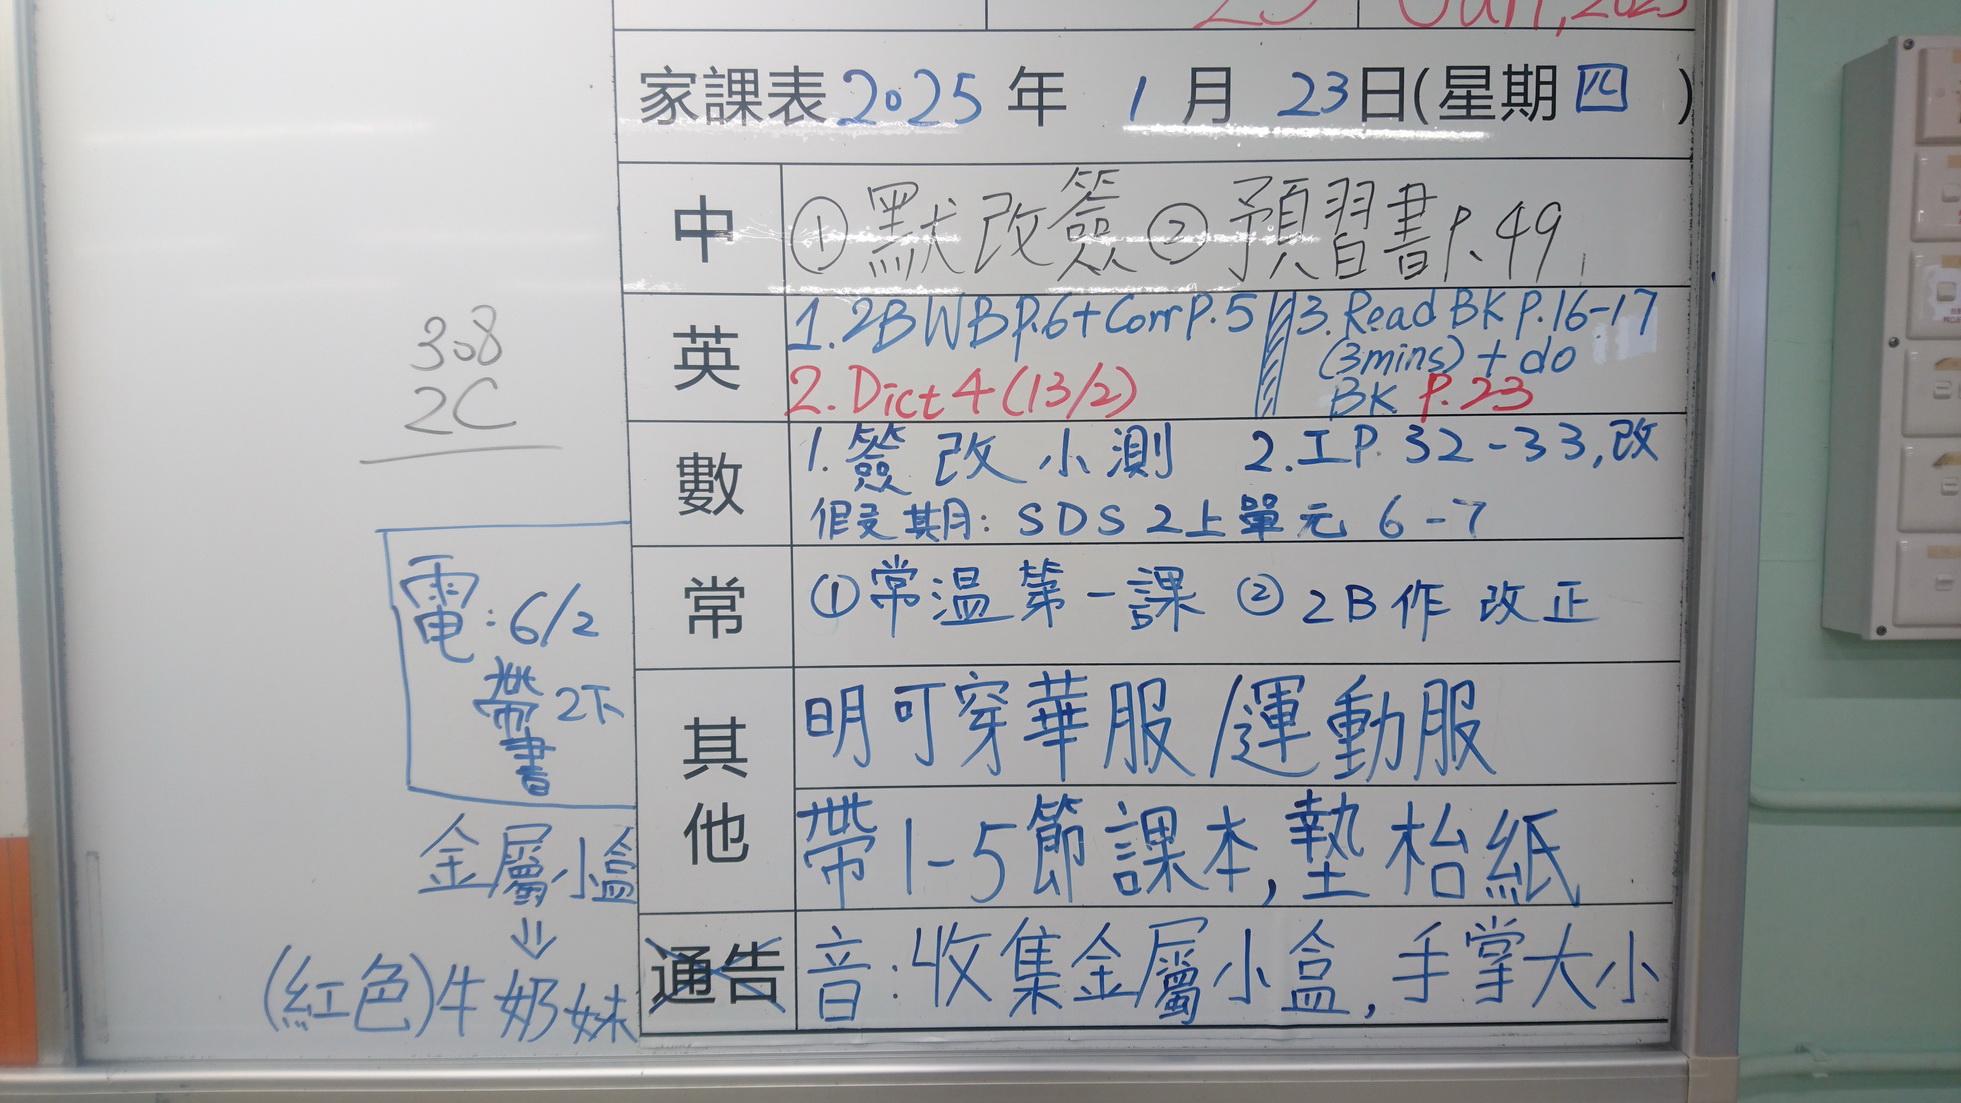 23 Jan, 2025
家課表 2025 年 1 月 23 日(星期四)
中 ①默改簽 ②預習書P.49
英 1. 2B WB P.6 + Corr P.5
2. Dict 4 (13/2)
3. Read BK P.16-17
(3mins) + do
BK P.23
數 1. 簽改小測 2. 工P. 32-33, 改
假期: SDS 2上單元 6-7
常 ①常溫第一課 ② 2B作 改正
其他 明可穿華服/運動服
帶1-5節課本, 墊枱紙
通告 音: 收集金屬小盒, 手掌大小
308
2C
電: 6/2
帶2下
書
金屬小盒
⇓
(紅色)牛奶妹